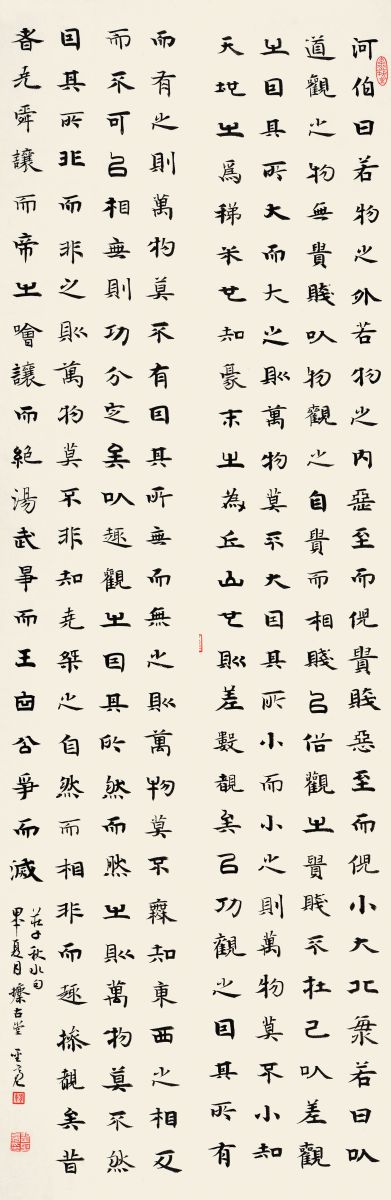 河伯曰若物之外若物之内惡至而倪貴賤惡至而倪小大北海若曰以
道觀之物無貴賤以物觀之自貴而相賤以俗觀之貴賤不在己以差觀
之因其所大而大之則萬物莫不大因其所小而小之則萬物莫不小知
天地之爲稊米也知豪末之為丘山也則差數覩矣以功觀之因其所有
而有之則萬物莫不有因其所無而無之則萬物莫不無知東西之相反
而不可以相無則功分定矣以趣觀之因其所然而然之則萬物莫不然
因其所非而非之則萬物莫不非知堯桀之自然而相非而趣操覩矣昔
者堯舜讓而帝之噲讓而絕湯武爭而王白公爭而滅
莊子秋水句
甲午夏月古堂